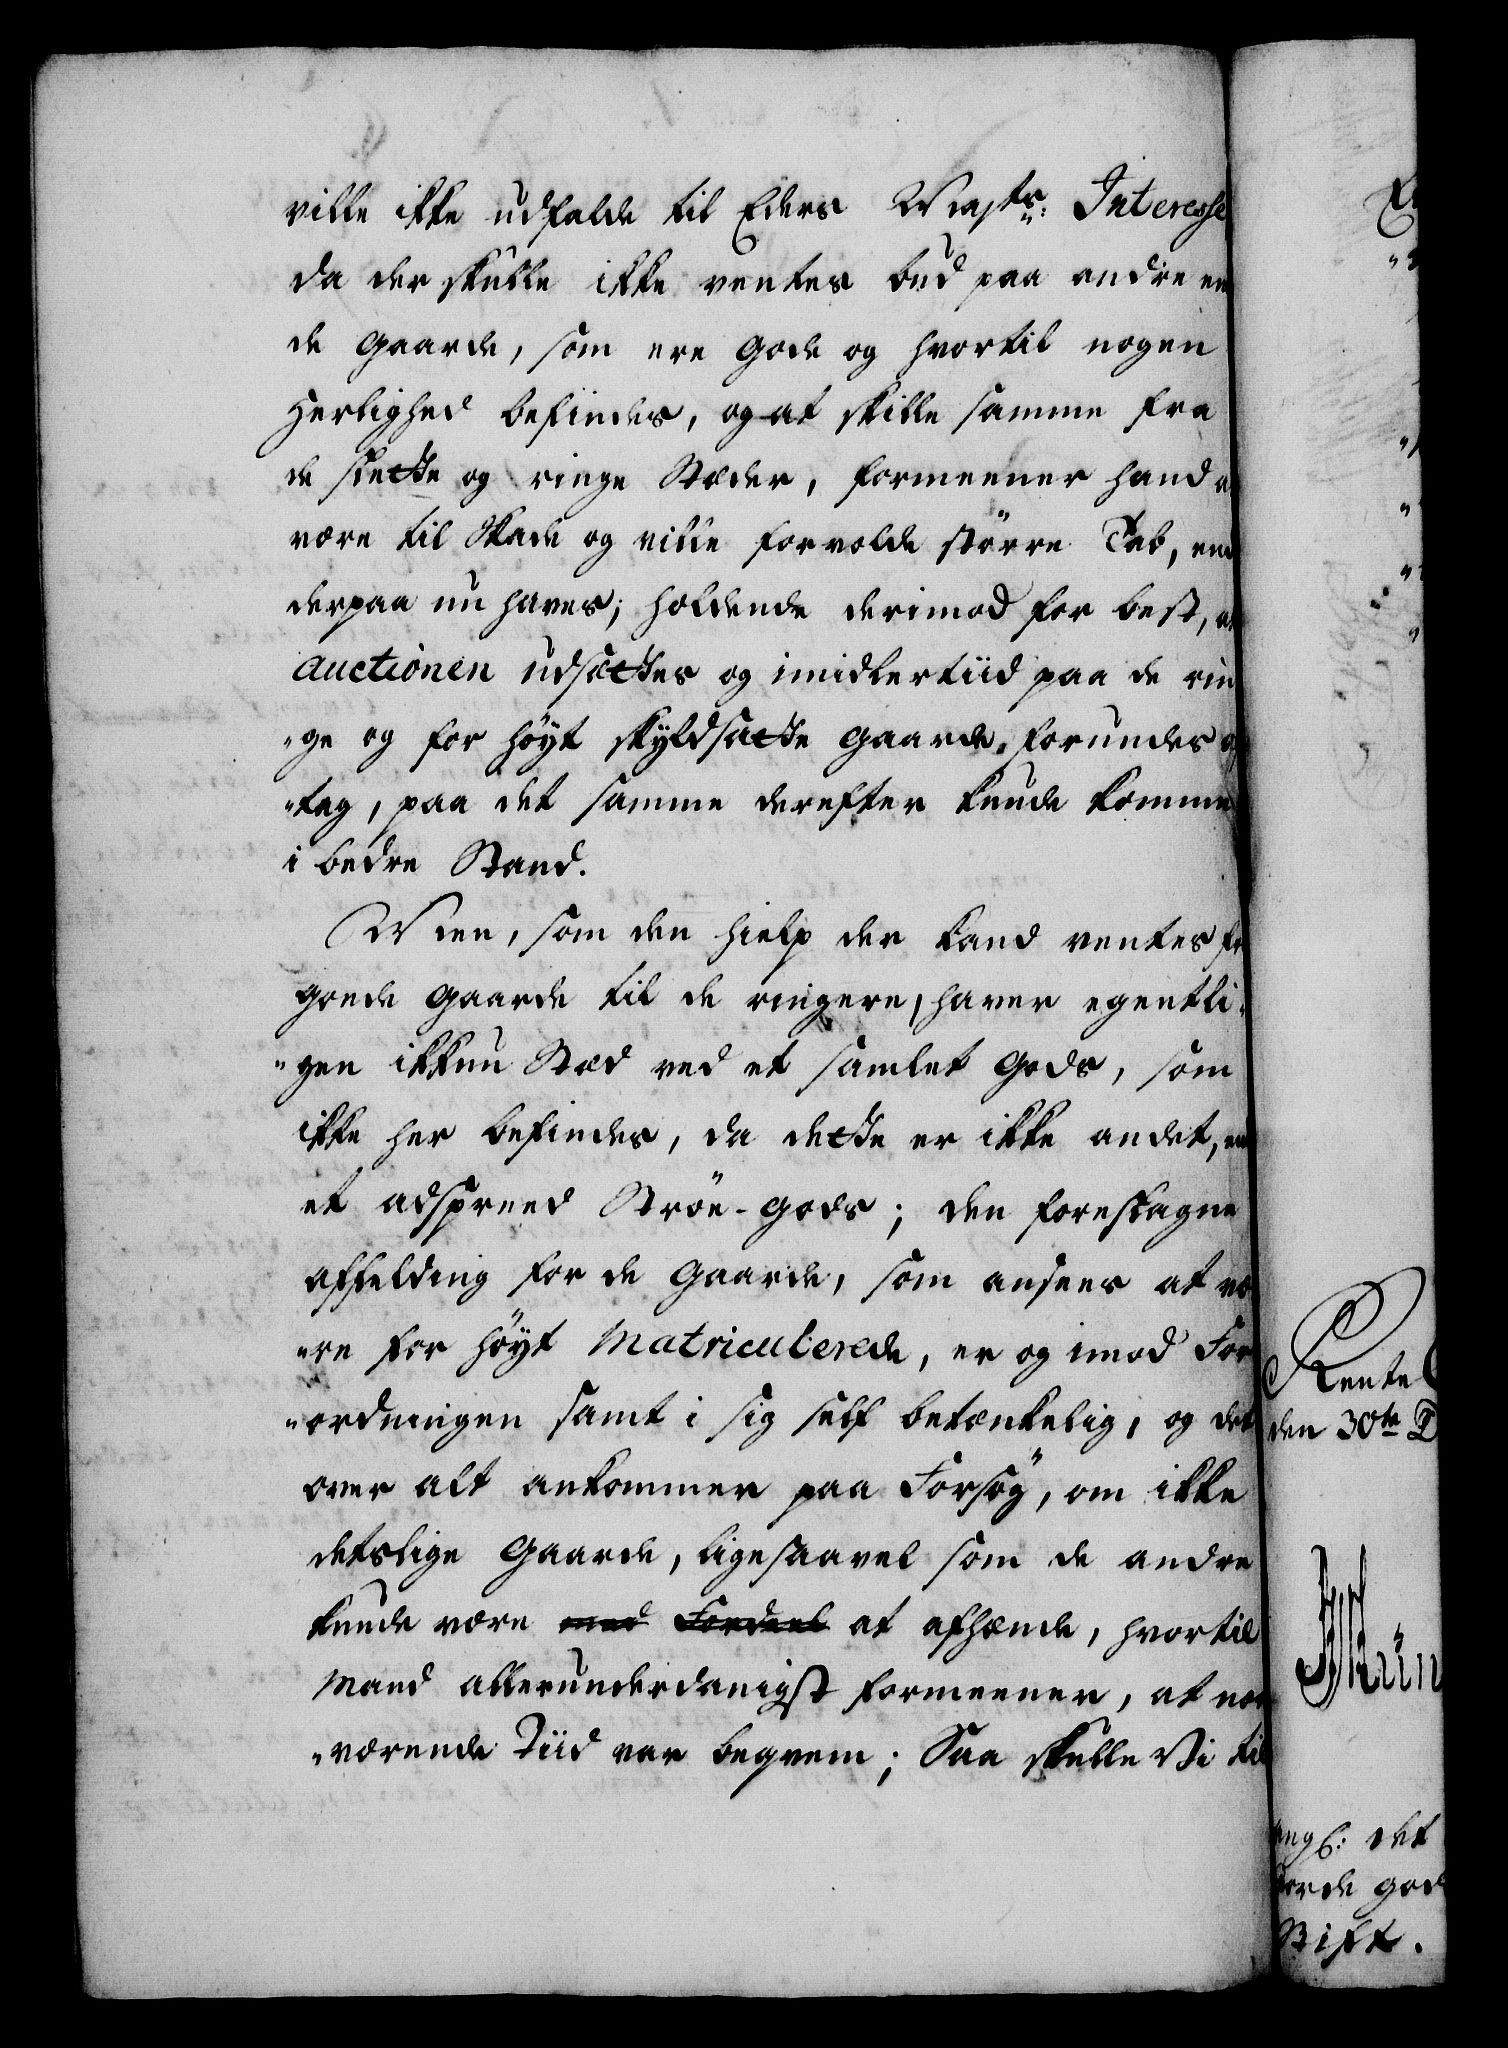 ville ikke udfalde til Eders Maj:ts: Interesse
da der skulle ikke ventes bud paa andre en
de Gaarde, som ere gode og hvortil nogen
Herlighed befindes, og at skille samme fra
de slette og ringe Stæder, formeener hand a
være til Skade og ville forvolde större Tab, end
derpaa nu haves; holdende derimod for best, a
auctionen udsættes og imidlertiid paa de rin
"ge og for höyt skyldsatte Gaarde, forundes a
"tag, paa det samme derefter kunde komme
i bedre Stand.
Men, som den hielp der kand ventes fr
goede Gaarde til de ringere, haver egentli-
"gen ikkun Stæd ved et samlet Gods, som
ikke her befindes, da dette er ikke andet, en
et adspreed Ströe-Gods; den foreslagne
affelding for de Gaarde, som ansees at væ
"re for höyt Matriculerede, er og imod For
"ordningen samt i sig self betænkelig, og det
over alt ankommer paa Forsög, om ikke
detslige Gaarde, ligesaavel som de andre
kunde være med Fordeel at afhænde, hvortil
Mand allerunderdanigst formeener, at nær
"værende Tiid var beqvem; Saa skulle Vi til
Rente
den 30te
ang: det
gode
Stift.